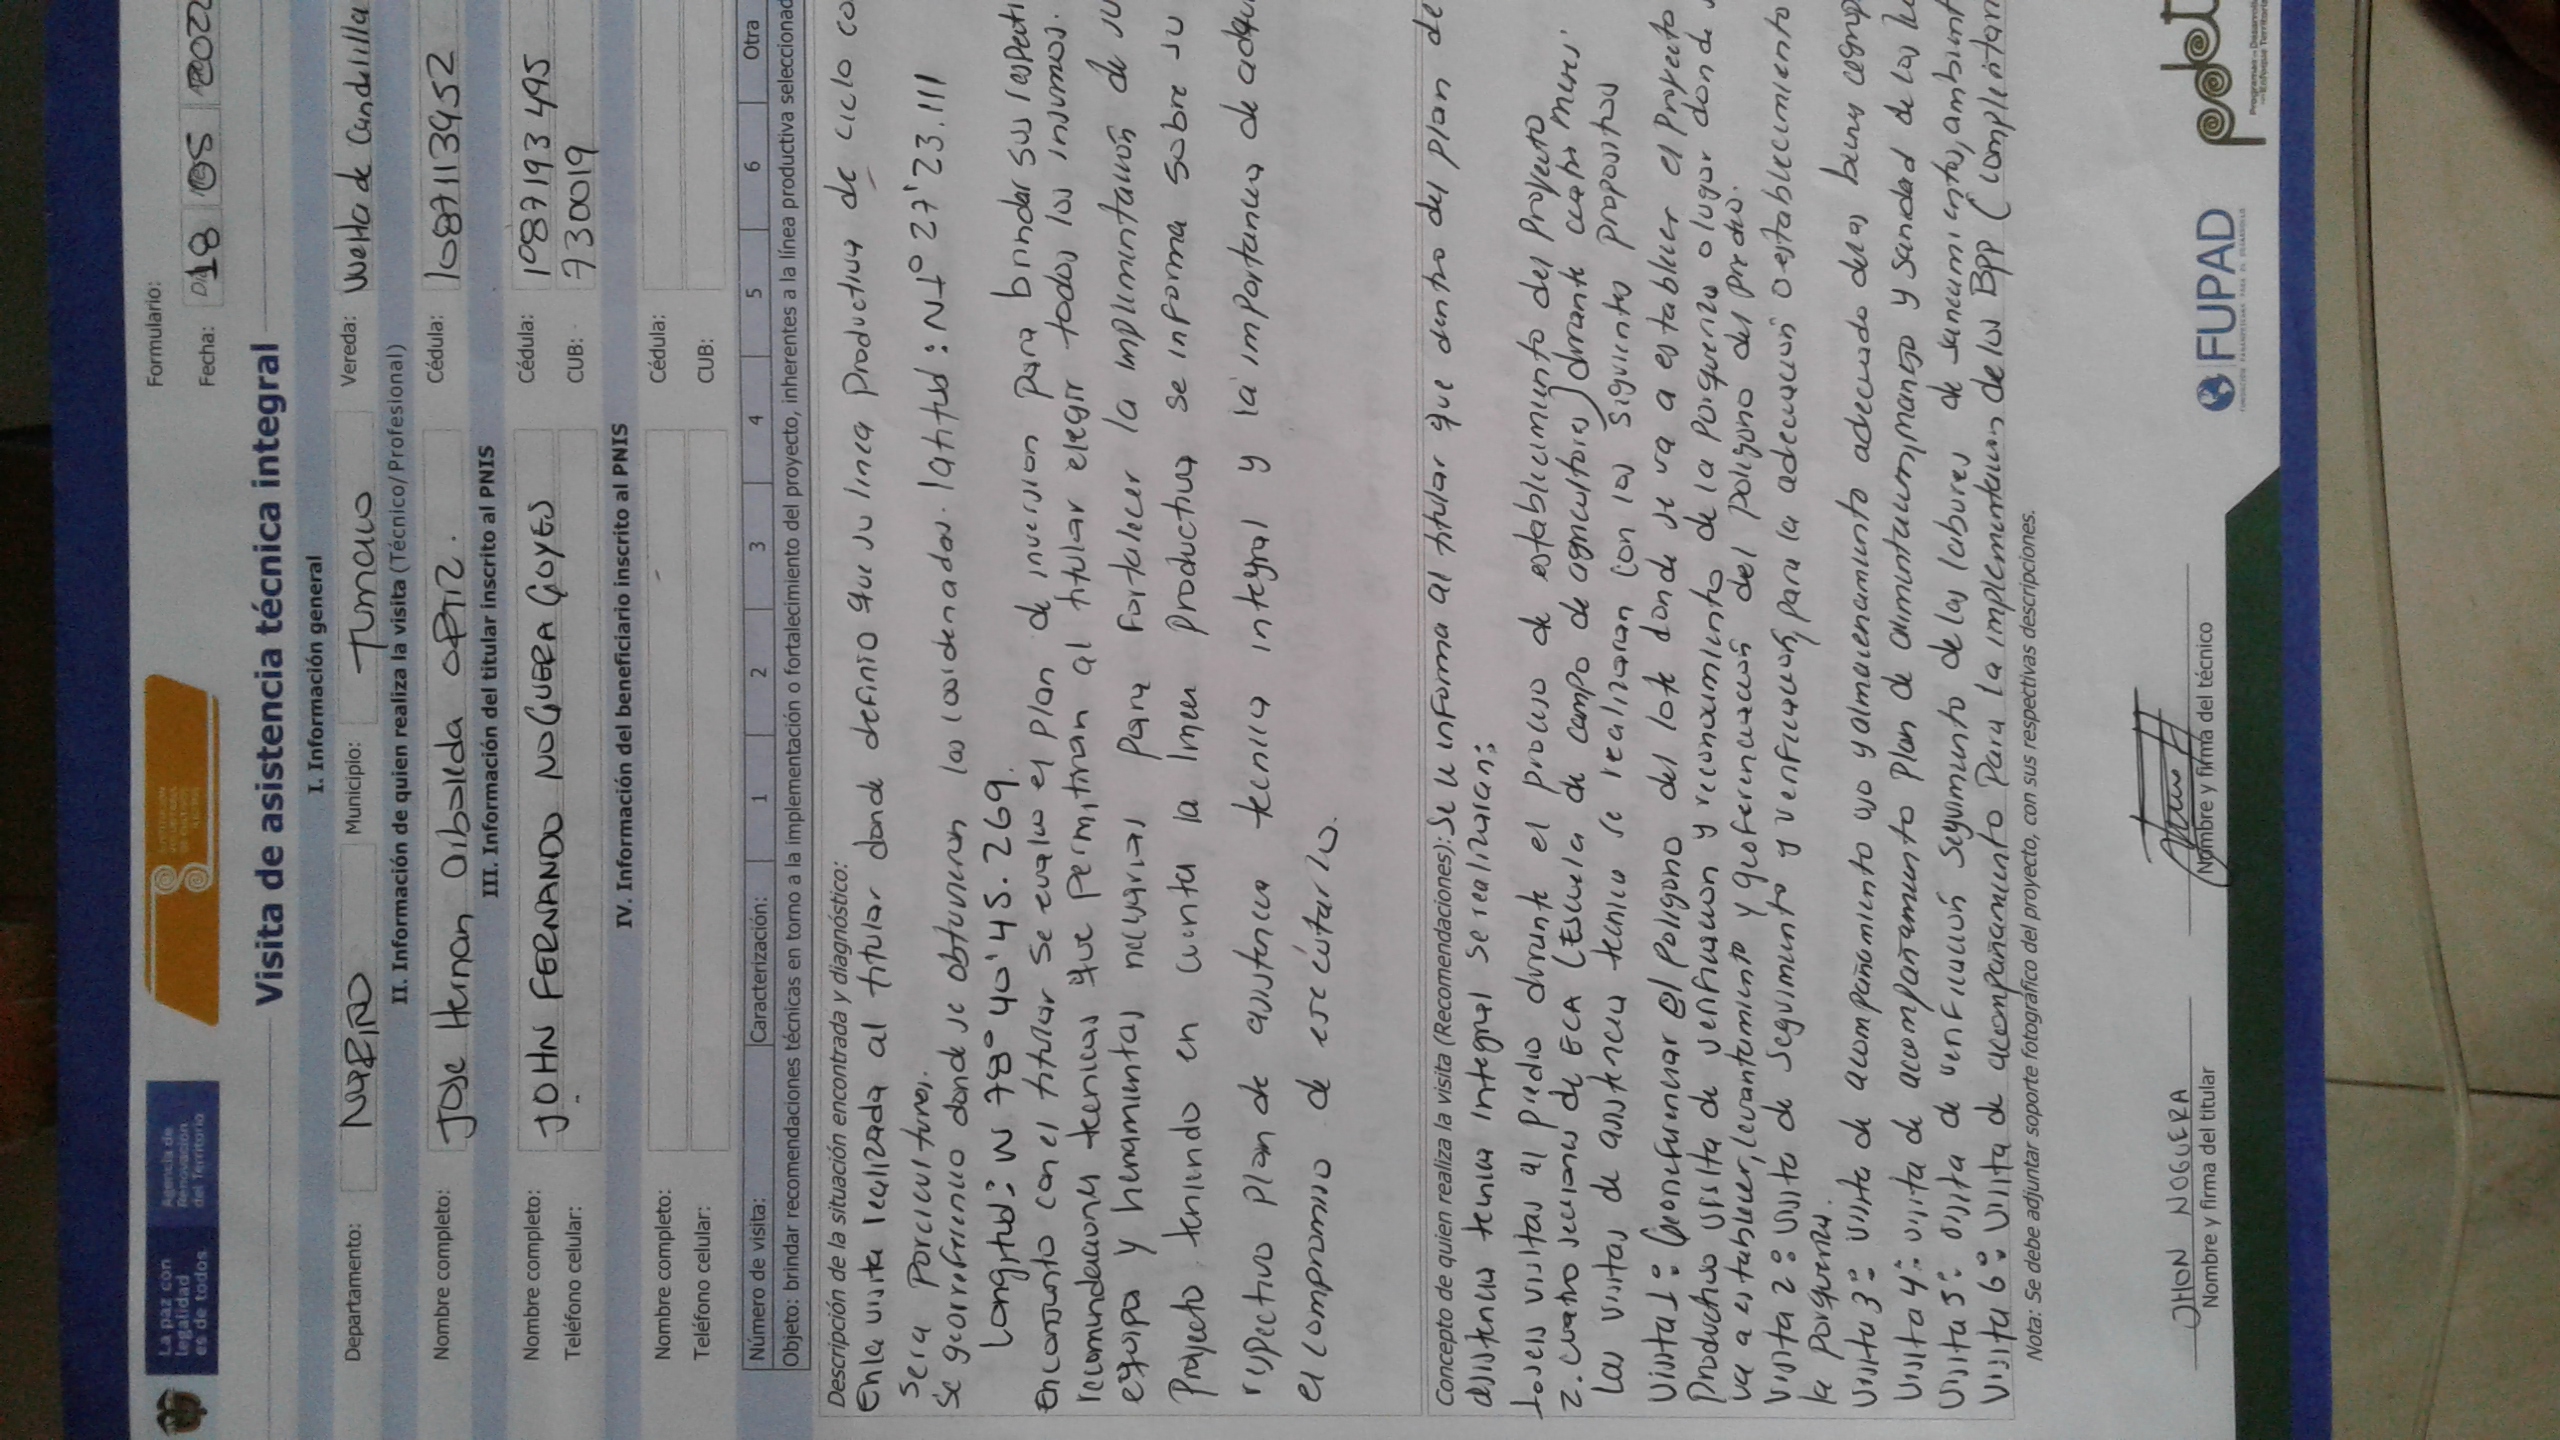 La paz con
legalidad
es de todos
Agencia de
Renovación
del Territorio
Formulario:
Fecha: Día 18 05 2022
Visita de asistencia técnica integral
I. Información general
Departamento: NARIÑO Municipio: Tumaco Vereda: Vuelta de Candelilla
II. Información de quien realiza la visita (Técnico/Profesional)
Nombre completo: Jose Hernan Arboleda ortiz. Cédula: 1087113952
III. Información del titular inscrito al PNIS
Nombre completo: JOHN FERNANDO NOGUERA GOYES Cédula: 1087193495
Teléfono celular: CUB: 730019
IV. Información del beneficiario inscrito al PNIS
Nombre completo: Cédula:
Teléfono celular: CUB:
Número de visita: Caracterización: 1 2 3 4 5 6 Otra
Objeto: brindar recomendaciones técnicas en torno a la implementación o fortalecimiento del proyecto, inherentes a la línea productiva seleccionad
Descripción de la situación encontrada y diagnóstico:
En la visita realizada al titular donde definio que su linea Productiva de ciclo co
sera Porcicultura.
Se georeferencio donde se obtuvieron las coordenadas. latitud: N1° 27' 23.111
Longitud: W 78° 40' 45.269.
En conjunto con el titular se evaluo el plan de inversion para brindar sus respecti
recomendaciones tecnicas que permitiran al titular elegir todos los insumos.
equipos y herramientas necesarias para fortalecer la implementacion de su
Proyecto. teniendo en cuenta la linea productiva se informa sobre su
respectivo plan de asistencia tecnica integral y la importancia de adqui
el compromiso de ejecutarlo.
Concepto de quien realiza la visita (Recomendaciones): Se le informa al titular que dentro del plan de
asistencia tecnica integral se realizaran:
1. seis visitas al predio durante el proceso de establecimiento del Proyecto
2. cuatro secciones de ECA (Escuela de campo de agricultores) durante cuatro meses.
Las visitas de asistencia tecnica se realizaran con los siguientes propositos
Visita 1: Georeferenciar el poligono del lote donde se va a establecer el Proyecto
Productivo visita de verificacion y reconocimiento de la Porqueriza o lugar donde s
va a establecer, levantamiento y georeferenciacion del poligono del predio.
Visita 2: visita de seguimiento y verificacion, para la adecuacion o establecimiento
la porqueriza.
Visita 3: visita de acompañamiento uso y almacenamiento adecuado de las buenas comp
Visita 4: visita de acompañamiento plan de alimentacion, manejo y sanidad de las
Visita 5: visita de verificación seguimiento de las labores de saneamientos, ambient
Visita 6: visita de acompañamiento Para la implementacion de las Bpp (complementan
Nota: Se debe adjuntar soporte fotográfico del proyecto, con sus respectivas descripciones.
JHON NOGUERA
Nombre y firma del titular
Nombre y firma del técnico
FUPAD
pdet